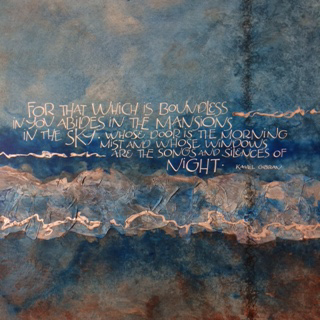 FOR THAT WHICH IS BOUNDLESS
IN YOU ABIDES IN THE MANSIONS
IN THE SKY, WHOSE DOOR IS THE MORNING
MIST AND WHOSE WINDOWS
ARE THE SONGS AND SILENCES OF
NIGHT. KAHLIL GIBRAN